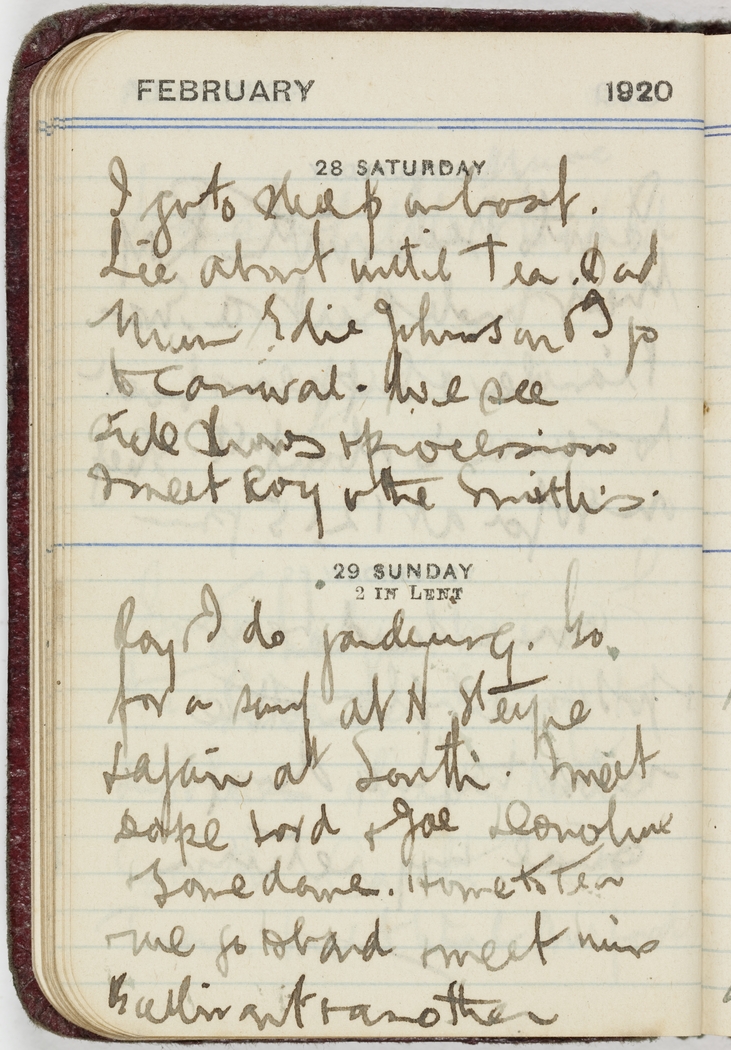 FEBRUARY 1920
28 SATURDAY
I go to sleep on boat.
Lie about until Tea. Dad
Mum Edie Johnson & I go
to Carnival. We see
side shows & procession
I meet Roy & the Smiths.
29 SUNDAY
2 IN LENT
Roy & I do gardening. Go
for a surf at N. Steyne
& again at South. I meet
& Joe
Some dame. Home to Tea
we go & meet miss
& another